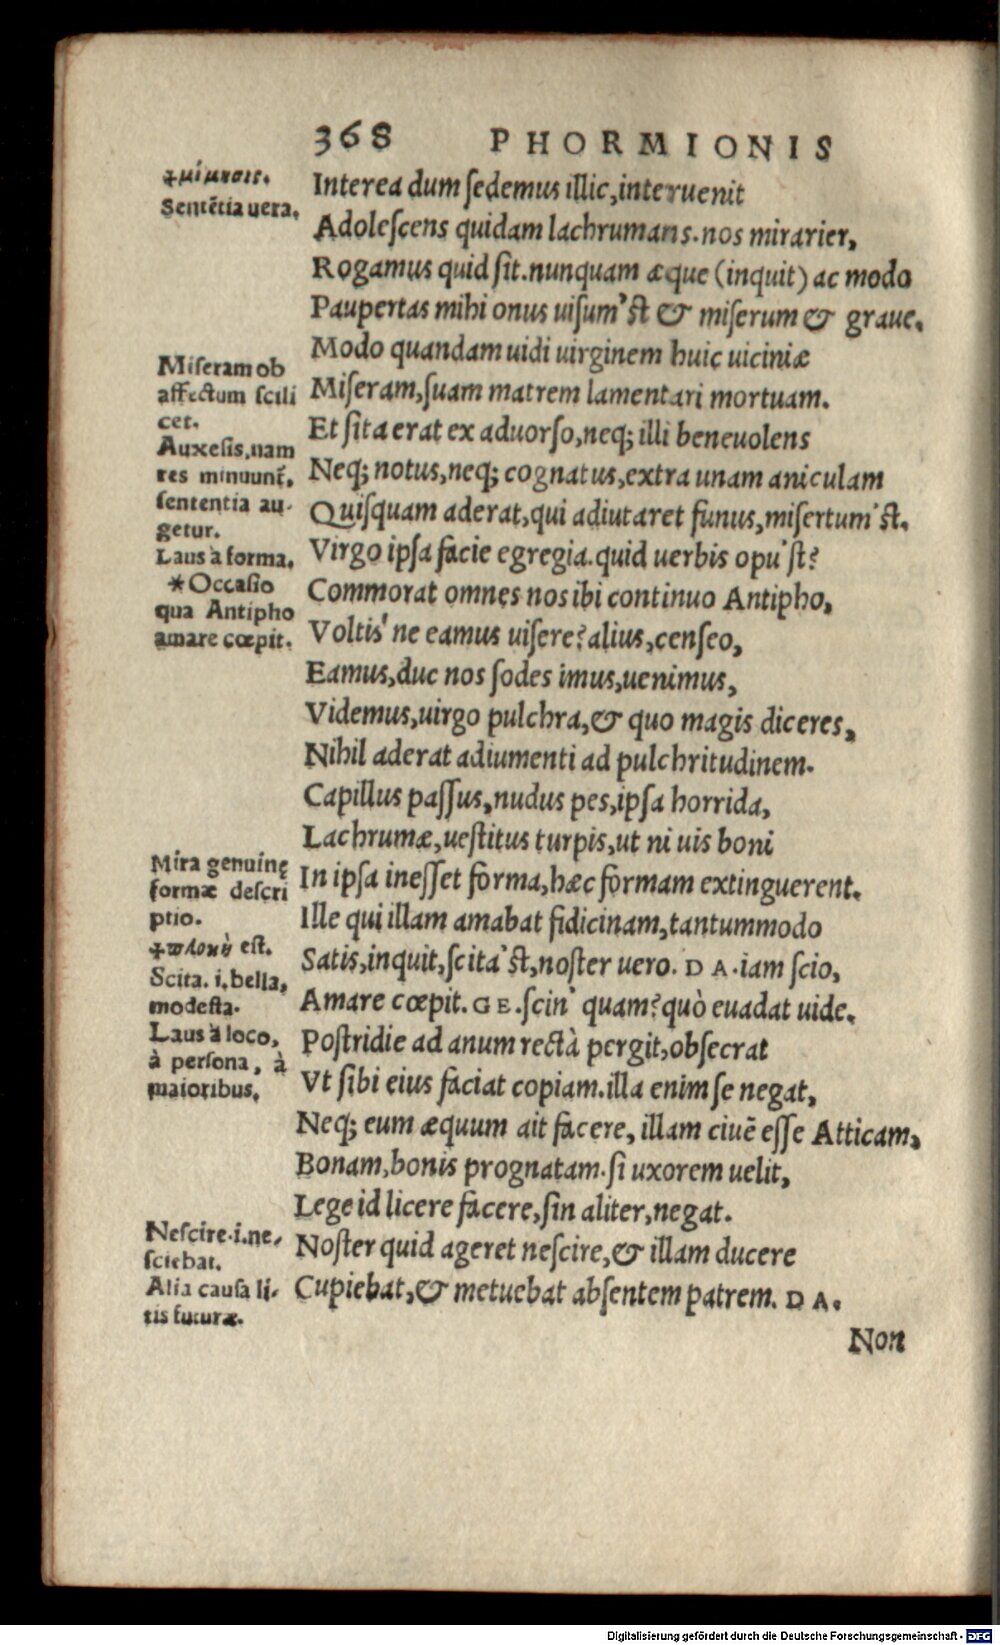 368 PHORMIONIS
✢μίμησις.
Sentẽtia uera.
Interea dum ſedemus illic,interuenit
Adoleſcens quidam lachrumans.nos mirarier,
Rogamus quid ſit.nunquam æque (inquit) ac modo
Paupertas mihi onus uiſum'ſt & miſerum & graue.
Modo quandam uidi uirginem huic uiciniæ
Miſeram,ſuam matrem lamentari mortuam.
Et ſita erat ex aduorſo,neq; illi beneuolens
Neq; notus,neq; cognatus,extra unam aniculam
Quiſquam aderat,qui adiutaret funus,miſertum'ſt.
Virgo ipſa facie egregia.quid uerbis opu'ſt?
Commorat omnes nos ibi continuo Antipho,
Voltis'ne eamus uiſere?alius,cenſeo,
Eamus,duc nos ſodes imus,uenimus,
Videmus,uirgo pulchra,& quo magis diceres,
Nihil aderat adiumenti ad pulchritudinem.
Capillus paſſus,nudus pes,ipſa horrida,
Lachrumæ,ueſtitus turpis,ut ni uis boni
In ipſa ineſſet forma,hæc formam extinguerent.
Ille qui illam amabat fidicinam,tantummodo
Satis,inquit,ſcita'ſt,noſter uero. DA.iam ſcio,
Amare cœpit. GE.ſcin' quam?quò euadat uide.
Poſtridie ad anum rectà pergit,obſecrat
Vt ſibi eius faciat copiam.illa enim ſe negat,
Neq; eum æquum ait facere, illam ciuẽ eſſe Atticam,
Bonam,bonis prognatam.ſi uxorem uelit,
Lege id licere facere,ſin aliter,negat.
Noſter quid ageret neſcire,& illam ducere
Cupiebat,& metuebat abſentem patrem. DA.
Non
Miſeram ob
affectum ſcili
cet.
Auxeſis,nam
res minuunt̃,
ſententia au-
getur.
Laus à forma.
*Occaſio
qua Antipho
amare cœpit.
Mira genuinę
formæ deſcri
ptio.
✢πλοκὴ eſt.
Scita. i. bella,
modeſta.
Laus à loco,
à perſona, à
maioribus.
Neſcire.i.ne-
ſciebat.
Alia cauſa li-
tis futuræ.
Digitalisierung gefördert durch die Deutsche Forschungsgemeinschaft - DFG